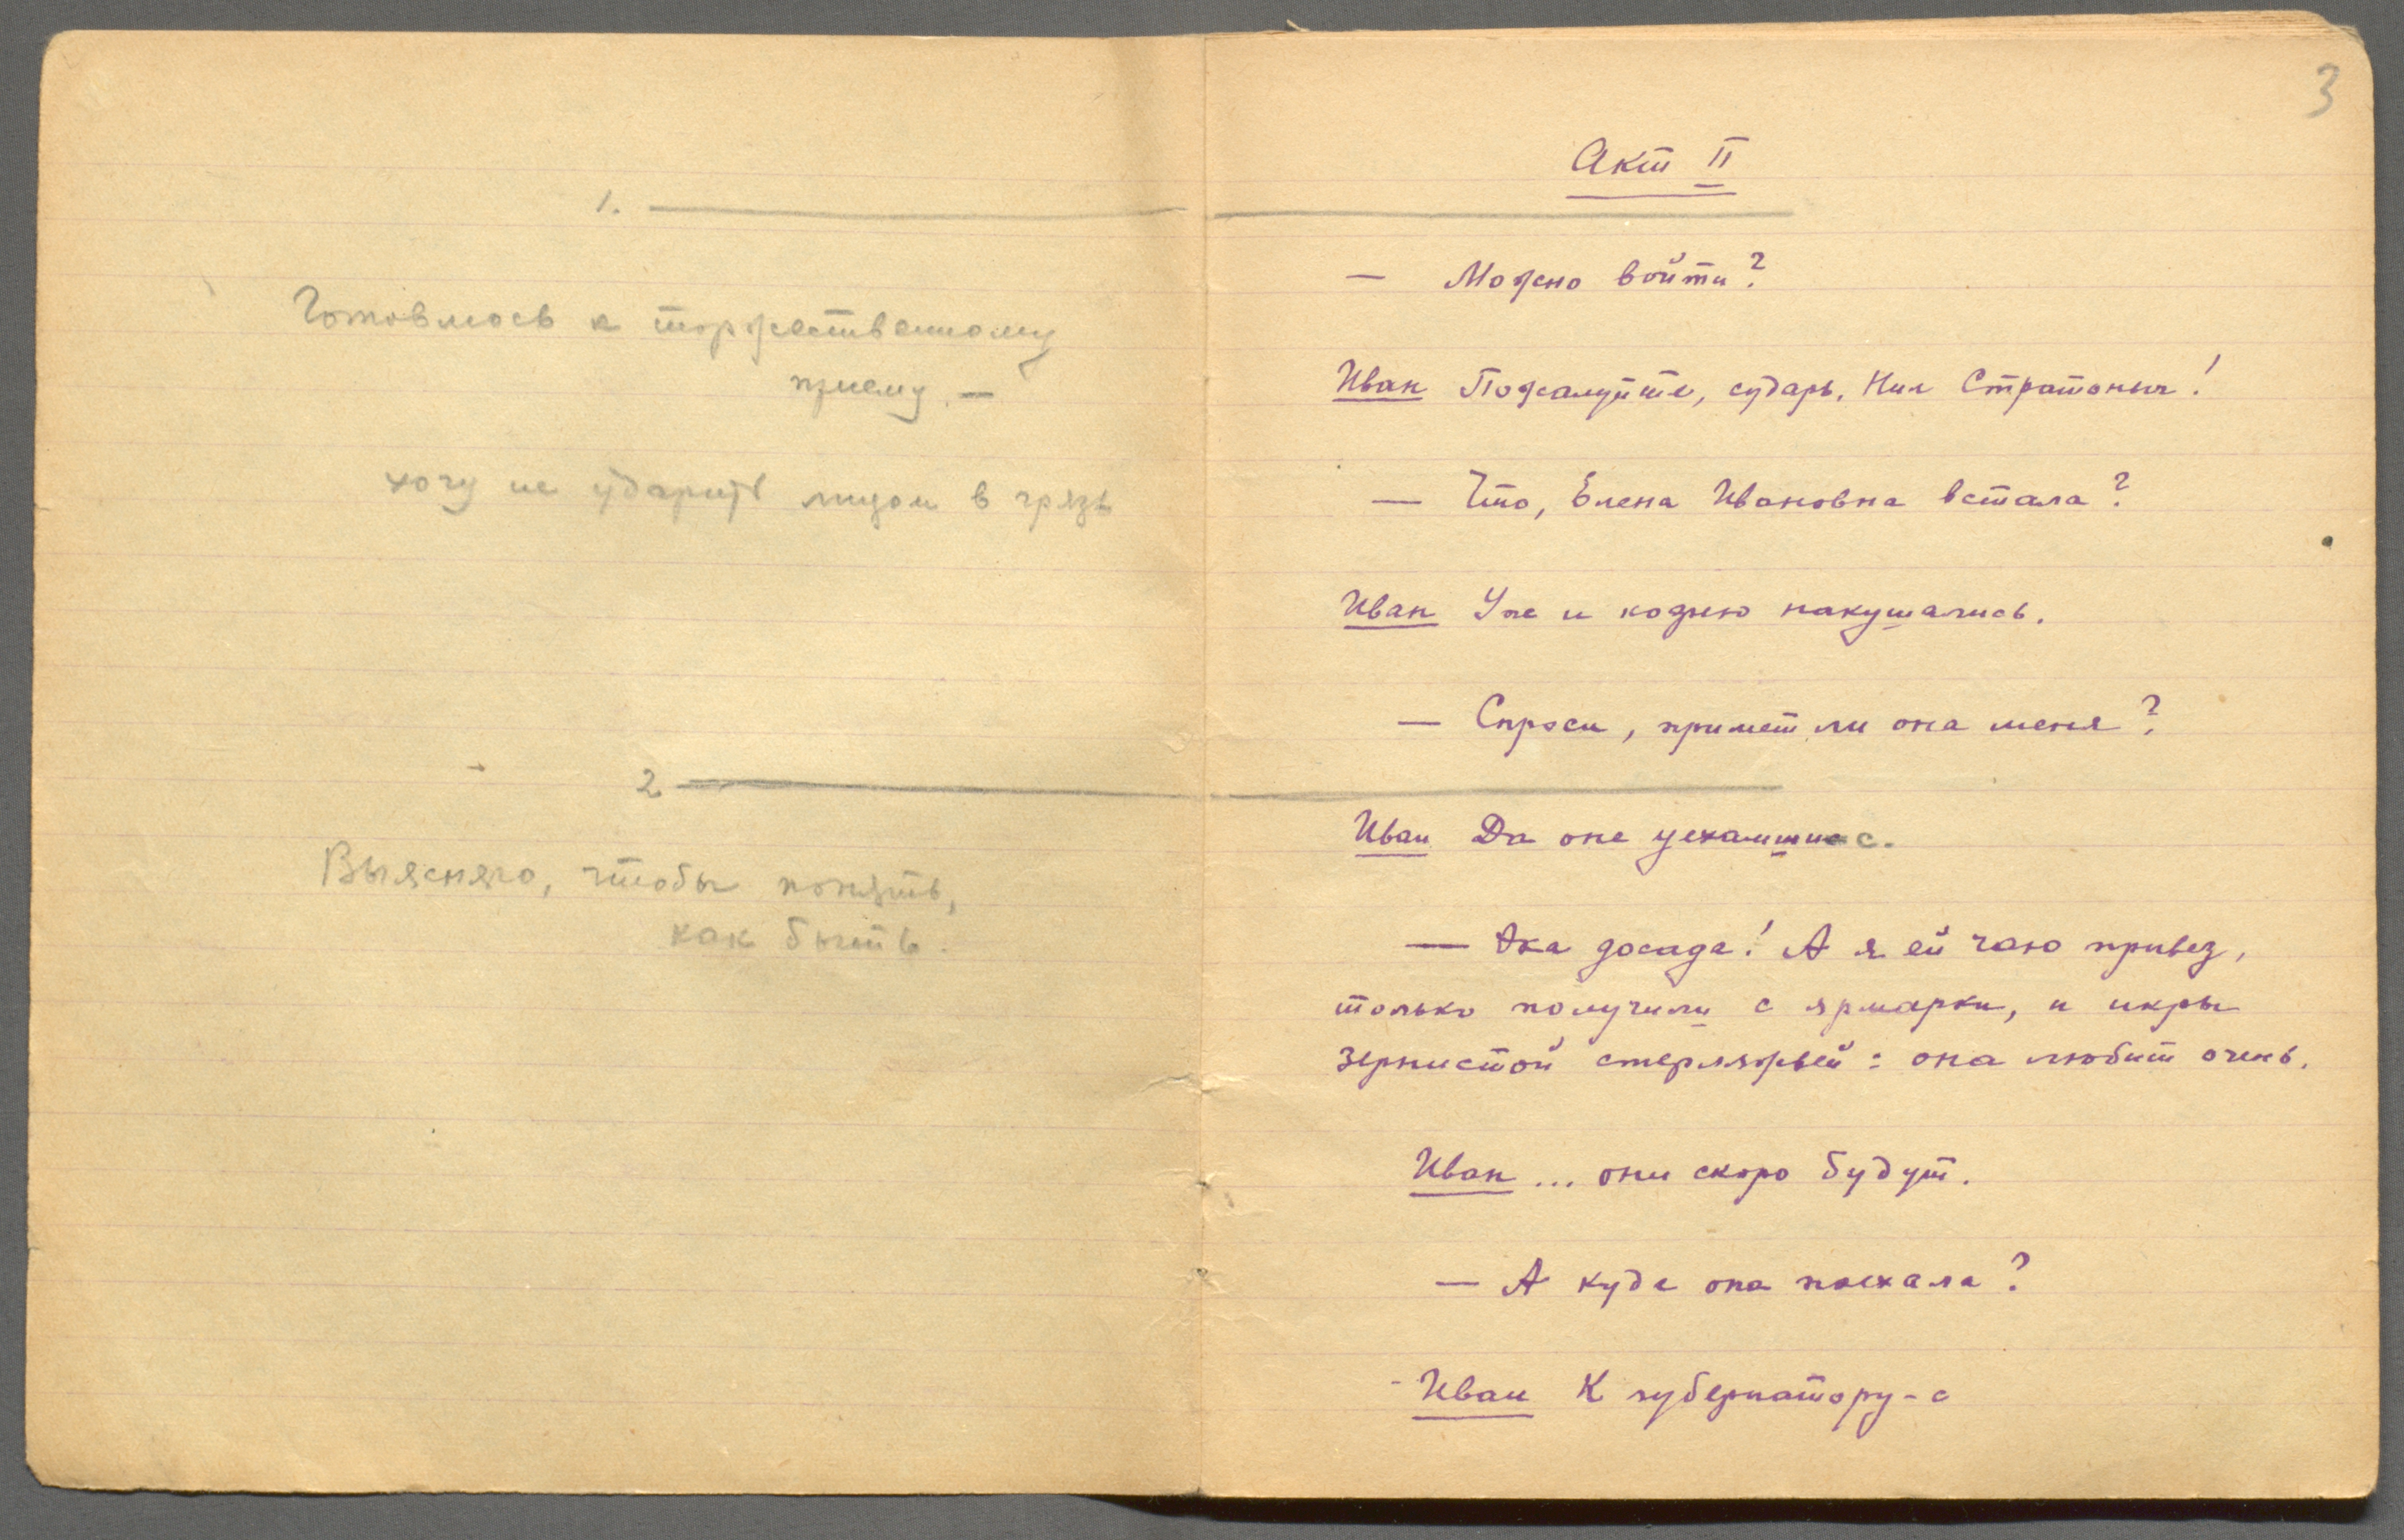 1.
Готовлюсь к торжественному
приему. —
хочу не ударить лицом в грязь
2
Выясняю, чтобы понять,
как быть.
3
Акт II
— Можно войти?
Иван Пожалуйте, сударь, Нил Стратоныч!
— Что, Елена Ивановна встала?
Иван Уже и кофию накушались.
— Спроси, примет ли она меня?
Иван Да оне уехамши с.
— Эка досада! А я ей чаю привез,
только получили с ярмарки, и икры
зернистой стерляжьей: она любит очень.
Иван ... они скоро будут.
— А куда она поехала?
- Иван К губернатору-с